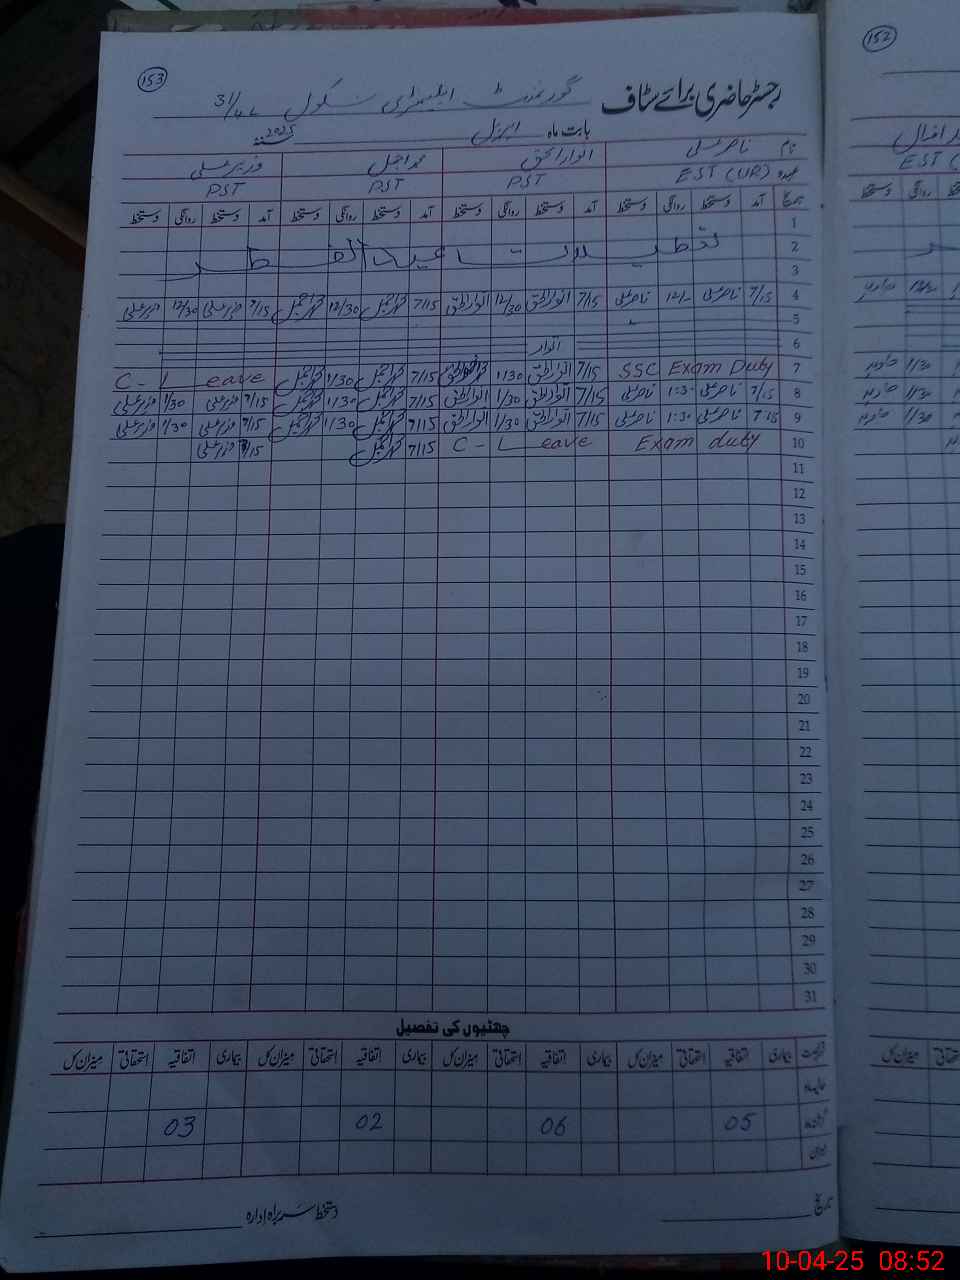 153
رجسٹر حاضری برائے سٹاف گورنمنٹ ایلیمنٹری سکول 31/4L
بابت ماہ اپریل سنہ 2025
نام ناصر علی انوارالحق محمد اجمل وزیر علی
عہدہ EST (UR) PST PST PST
تاریخ آمد دستخط روانگی دستخط آمد دستخط روانگی دستخط آمد دستخط روانگی دستخط آمد دستخط روانگی دستخط
1
2 تعطیلات عیدالفطر
3
4 7/15 ناصر علی 12/ ناصر علی 7/15 انوارالحق 12/30 انوارالحق 7/15 محمد اجمل 12/30 محمد اجمل 7/15 وزیر علی 12/30 وزیر علی
5
6 اتوار
7 SSC Exam Duty 7/15 انوارالحق 1/30 انوارالحق 7/15 محمد اجمل 1/30 محمد اجمل C-Leave
8 7/15 ناصر علی 1:30 ناصر علی 7/15 انوارالحق 1/30 انوارالحق 7/15 محمد اجمل 1/30 محمد اجمل 7/15 وزیر علی 1/30 وزیر علی
9 7:15 ناصر علی 1:30 ناصر علی 7/15 انوارالحق 1/30 انوارالحق 7/15 محمد اجمل 1/30 محمد اجمل 7/15 وزیر علی 1/30 وزیر علی
10 Exam duty C-Leave 7/15 محمد اجمل 7/15 وزیر علی
11
12
13
14
15
16
17
18
19
20
21
22
23
24
25
26
27
28
29
30
31
چھٹیوں کی تفصیل
بیماری اتفاقیہ استحقاقی میزان کل بیماری اتفاقیہ استحقاقی میزان کل بیماری اتفاقیہ استحقاقی میزان کل بیماری اتفاقیہ استحقاقی میزان کل
05 06 02 03
تاریخ دستخط سربراہ ادارہ
152
EST
10-04-25 08:52